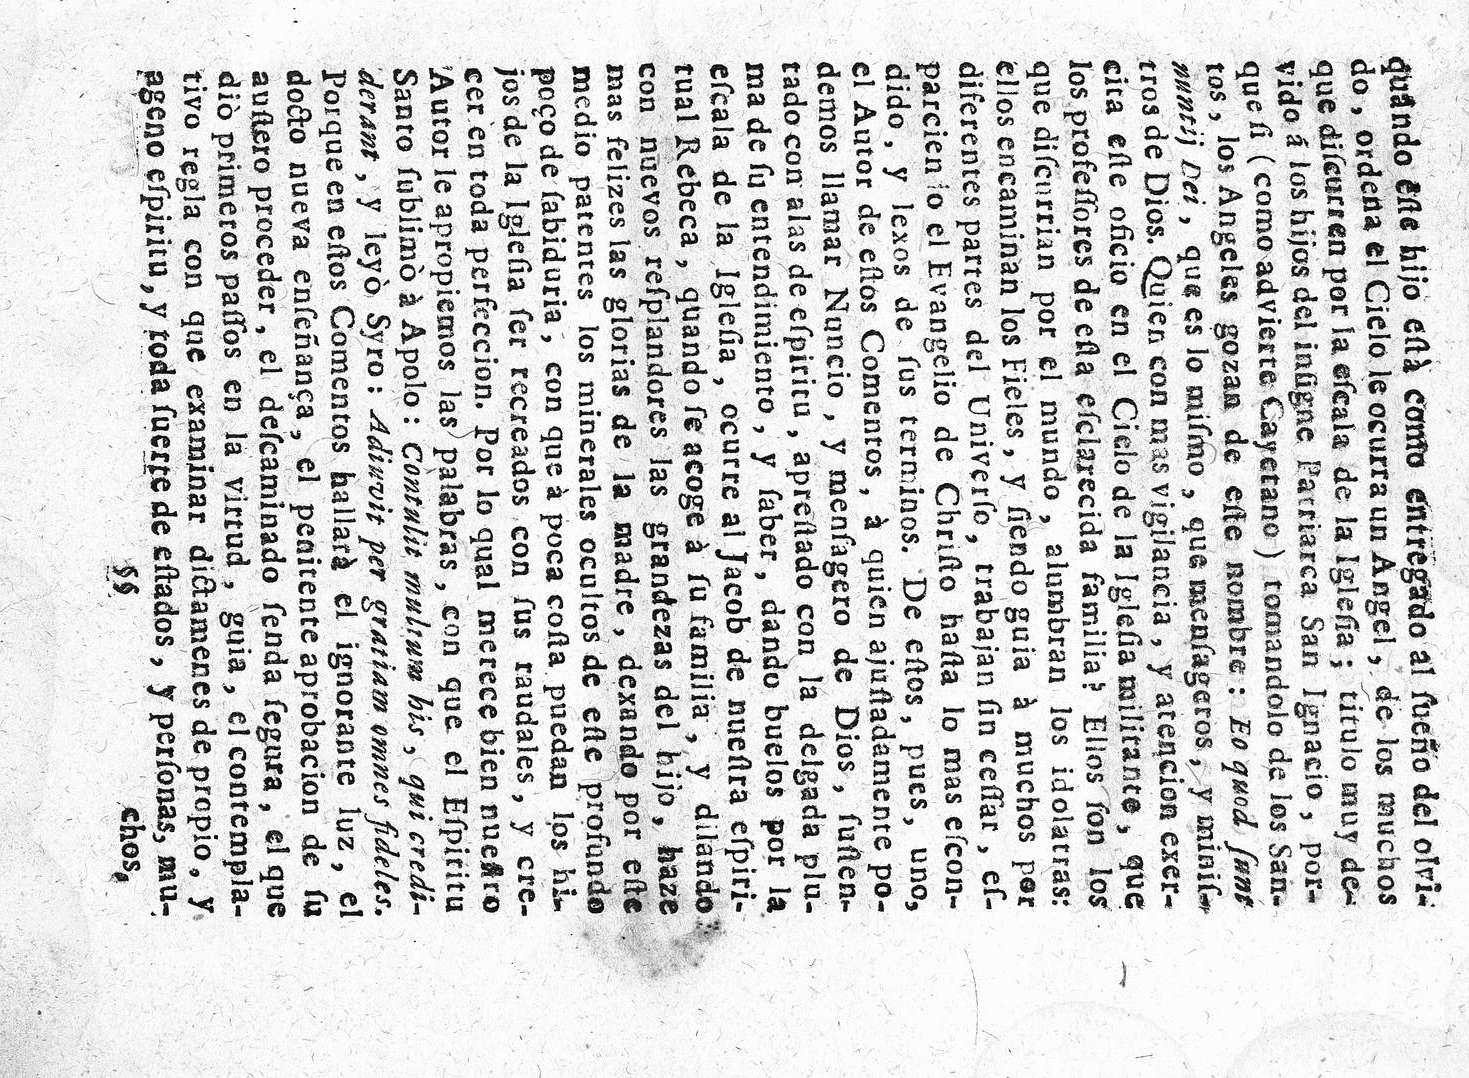 quando eſte hijo eſtà como entregado al ſueño del olvi-
do, ordena el Cielo le ocurra un Angel, de los muchos
que diſcurren por la eſcala de la Igleſia; titulo muy de-
vido á los hijos del inſigne Patriarca San Ignacio, por-
que ſi (como advierte Cayetano) tomandolo de los San-
tos, los Angeles gozan de eſte nombre: Eo quod ſunt
nuntij Dei, que es lo miſmo, que menſageros, y miniſ-
tros de Dios. Quien con mas vigilancia, y atencion exer-
cita eſte oficio en el Cielo de la Igleſia militante, que
los profeſſores de eſta eſclarecida familia? Ellos ſon los
que diſcurrian por el mundo, alumbran los idolatras:
ellos encaminan los Fieles, y ſiendo guia à muchos por
diferentes partes del Univerſo, trabajan ſin ceſſar, eſ-
parciendo el Evangelio de Chriſto haſta lo mas eſcon-
dido, y lexos de ſus terminos. De eſtos, pues, uno,
el Autor de eſtos Comentos, à quien ajuſtadamente po-
demos llamar Nuncio, y menſagero de Dios, ſuſten-
tado con alas de eſpiritu, apreſtado con la delgada plu-
ma de ſu entendimiento, y ſaber, dando buelos por la
eſcala de la Igleſia, ocurre al Jacob de nueſtra eſpiri-
tual Rebeca, quando ſe acoge à ſu familia, y dilando
con nuevos reſplandores las grandezas del hijo, haze
mas felizes las glorias de la madre, dexando por eſte
medio patentes los minerales ocultos de eſte profundo
poço de ſabiduria, con que à poca coſta puedan los hi-
jos de la Igleſia ſer recreados con ſus raudales, y cre-
cer en toda perfeccion. Por lo qual merece bien nueſtro
Autor le apropiemos las palabras, con que el Eſpiritu
Santo ſublimò à Apolo: Contulit multum his, qui credi-
derant, y leyò Syro: Adiuvit per gratiam omnes fideles.
Porque en eſtos Comentos hallarà el ignorante luz, el
docto nueva enſeñança, el penitente aprobacion de ſu
auſtero proceder, el deſcaminado ſenda ſegura, el que
diò primeros paſſos en la virtud, guia, el contempla-
tivo regla con que examinar dictamenes de propio, y
ageno eſpiritu, y toda ſuerte de eſtados, y perſonas, mu-
§§ chos,